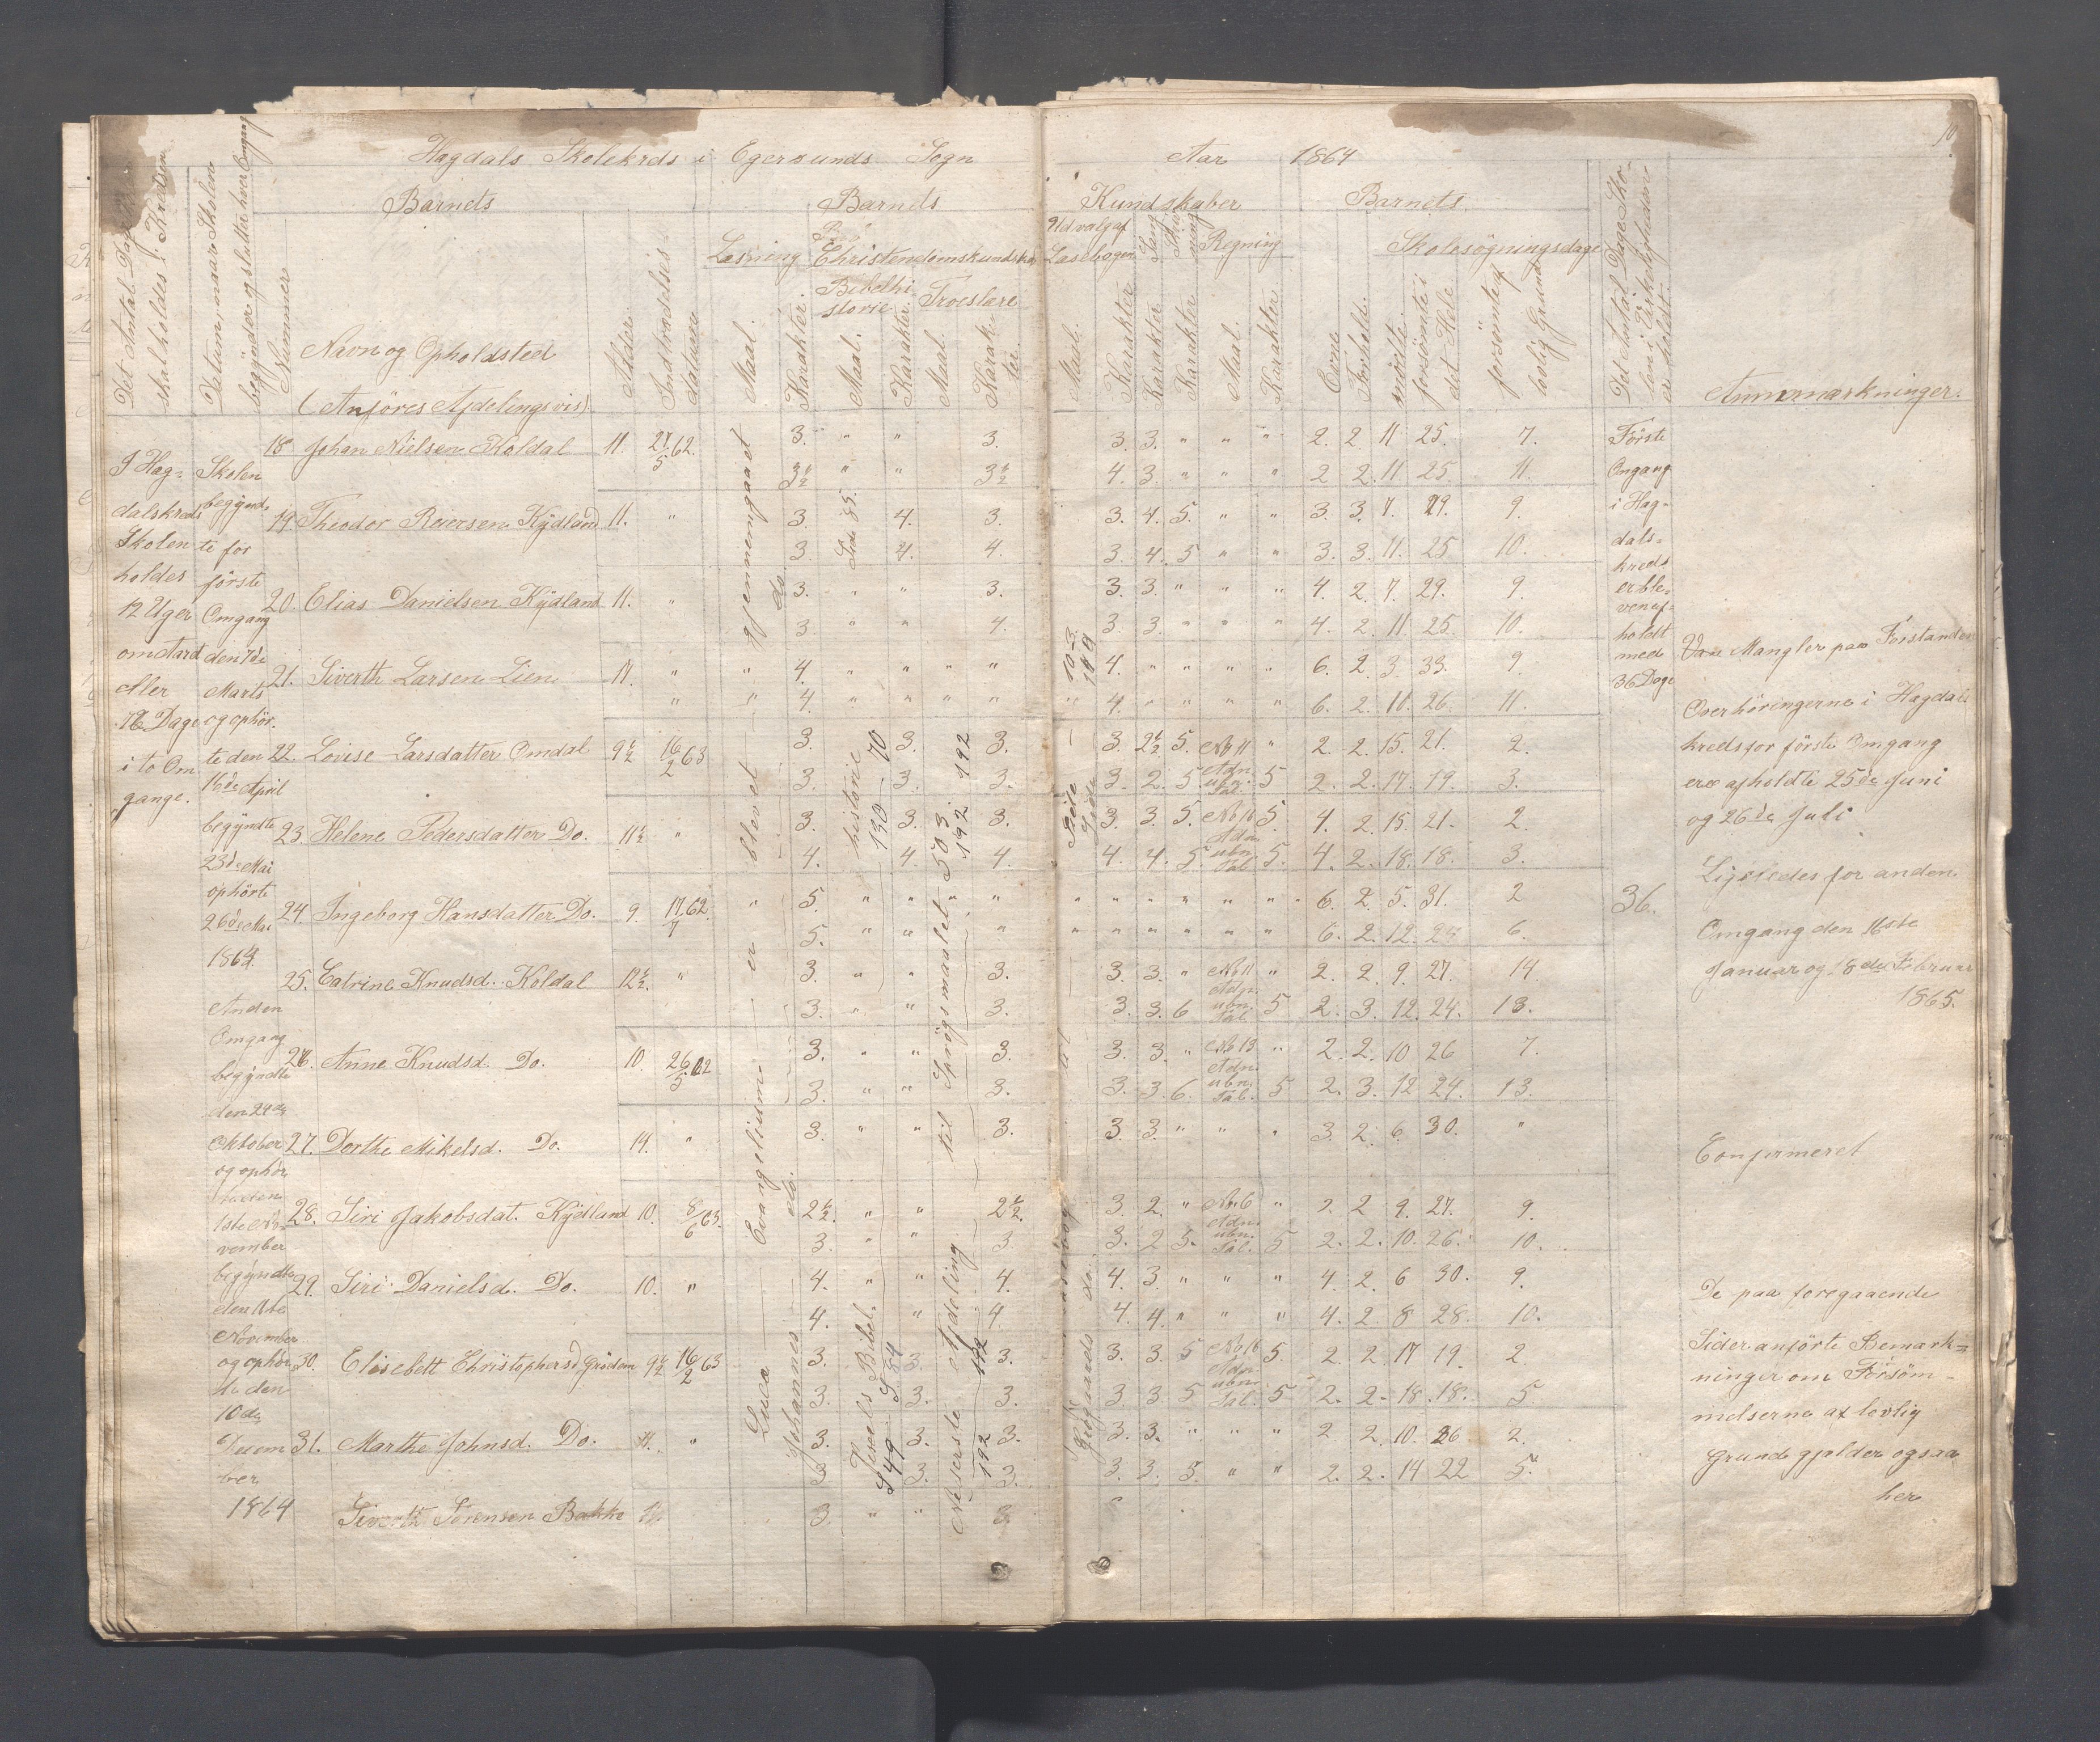 10
Hagdals Skolekreds i Egersunds Sogn Aar 1864
Barnets Barnets Kundskaber Barnets
Det Antal Dage
skal holdes i Kredsen
Datum, naar Skolen
begynder og slutter hver Omgang
Nummer
Navn og Opholdsted
(Anføres Afdelingsvis)
Alder
Indtrædelses
datum
Læsning Christendomskundskab
Bibelhi
storie Troeslære
Maal. Karakter. Maal. Karakter. Maal. Karak
ter.
Udvalg af
Læsebogen Sang Skriv
ning Regning
Maal. Karakter Karakter Karakter Maal. Karakter
Evne Forhold.
Skolesøgningsdage
mødte.
forsømte i
det Hele.
forsømte af
lovlig Grund
Det Antal Dage Sko-
len i Virkeligheden
er holdt.
Anmærkninger.
18 Johan Nielsen Koldal 11. 27/5 62. 3. " " 3. 3. 3. " " " 2. 2 11 25. 7.
3½ " " 3½ 4. 3. " " " 2 2. 11 25. 11.
19. Theodor Reiersen Kydland 11. " 3. 4. 3. 3. 4. 5. " " 3. 3. 7. 29. 9.
3. 4. 4. 3. 4. 5 " " 3. 3. 11. 25 10.
20. Elias Danielsen Kydland 11. " 3. " " 3. 3. 3. " " " 4. 2. 7. 29. 9.
3. " " 4. 3. 3. " " " 4. 2. 11. 25. 10.
21. Siverth Larsen Lien 11. " " 4. " " " " 4. " " " " 6. 2. 3. 33. 9.
" " 4. " " " " " 4. " " " " 6. 2. 11. 26. 11.
22. Lovise Larsdatter Omdal 9½ 16/2 63 3. 3. 3. 3. 2½ 5. No 11 " 2. 2. 15. 21. 2.
3. 3. 3. 3. 2. 5 Adn. ubn. Tal. 5 2. 2. 17. 19. 3.
23. Helene Pedersdatter Do. 11½ " 3. 3. 3. 3. 3. 5. No 16 5. 4. 2. 15. 21. 2.
4. 4. 4. 4. 4. 5 Adn. ubn. Tal 5. 4. 2. 18. 18. 3.
24. Ingeborg Hansdatter Do. 9. 17/7 62. " 5. " " " " " " " " " " 6. 2. 5. 31. 2
5. " " " " " " " " " 6. 2. 12. 24 6.
25. Catrine Knudsd. Koldal 12½. " 3. " " 3. 3. 3. " No 11 " 2. 2. 9. 27. 14.
3. " " 3. 3. 3. 6 Adn. ubn. Tal. 5 2. 3. 12. 24. 13.
26. Anne Knudsd. Do. 10. 26/5 62 3. " " 3. 3. 3. " No 13 " 2. 2. 10 26 7.
3. " " 3. 3. 3. 6. Adn. ubn. Tal. 5 2. 3. 12 24. 13.
27. Dorthe Mikelsd. Do. 14. " 3. " " 3. 3. 3. " " " 3. 2. 6. 30. "
28. Siri Jakobsdat. Kydland 10. 8/6 63. 2½. " " 2½. 3. 2. " No 6 " 2. 2 9. 27. 9.
3. " " 3. 3. 2 5. Adn. ubn. Tal. 5 2. 2. 10. 26. 10.
29. Siri Danielsd. Do. 10. " 4. " " 4. 4. 3. " " " 4. 2. 6 30. 9.
4. " 4. 4. 4. " " " 4. 2. 8 28. 10.
30. Elisebett Christophersd Grødem 9½ 16/2 63 3. 3. 3. 3. 3. 5 No 16 5. 2. 2 17 19. 2.
3. 3. 3. 3. 3 5 Adn. ubn. Tal. 5 2. 2. 18. 18. 5.
31. Marthe Johnsd. Do. 11. " 3. 3. 3. 3. 3. " " " 2 2. 10. 26 2.
3 3. 3. 3. 3. 5. " " 2. 2. 14 22 5.
Siverth Sørensen Bakke 3. " " 3.
I Hag-
dalskreds
Skolen
holdes
12 Uger
eller
Dage
i to Om-
gange.
Skolen
begynd-
te for
første
Omgang
den 7de
Marts
og ophør-
te den
16de April
begyndte
23de Mai
ophørte
26de Mai
1864.
Anden
Omgang
begyndte
Oktober
og ophør
1ste No
vember
begyndte
den 11te
November
og ophør
te den
10de
Decem
ber
1864
Lucæ Evangelium er blevet gjennemgaaet
Johannes do. do.
Side 55.
historie 130 70
Bibel. S 54
S 49
Afdeling til Spørgsmaalet 503 192
192 192
192
Side 103
Side 149
do
Første
Omgang
i Hag-
dals-
kreds
er ble-
ven af-
holdt
med
36 Dage
36.
Mangler paa Forstander
Overhøringerne i Hagdal
kreds for første Omgang
ere afholdte 25de Juni
og 26de Juli
Ligeledes for anden
Omgang den 16ste
Januar og 18de Februar
1865.
Confirmeret
De paa foregaaende
Sider anførte Bemærk-
ninger om Forsøm-
melserne af lovlig
Grund gjælder ogsaa
her